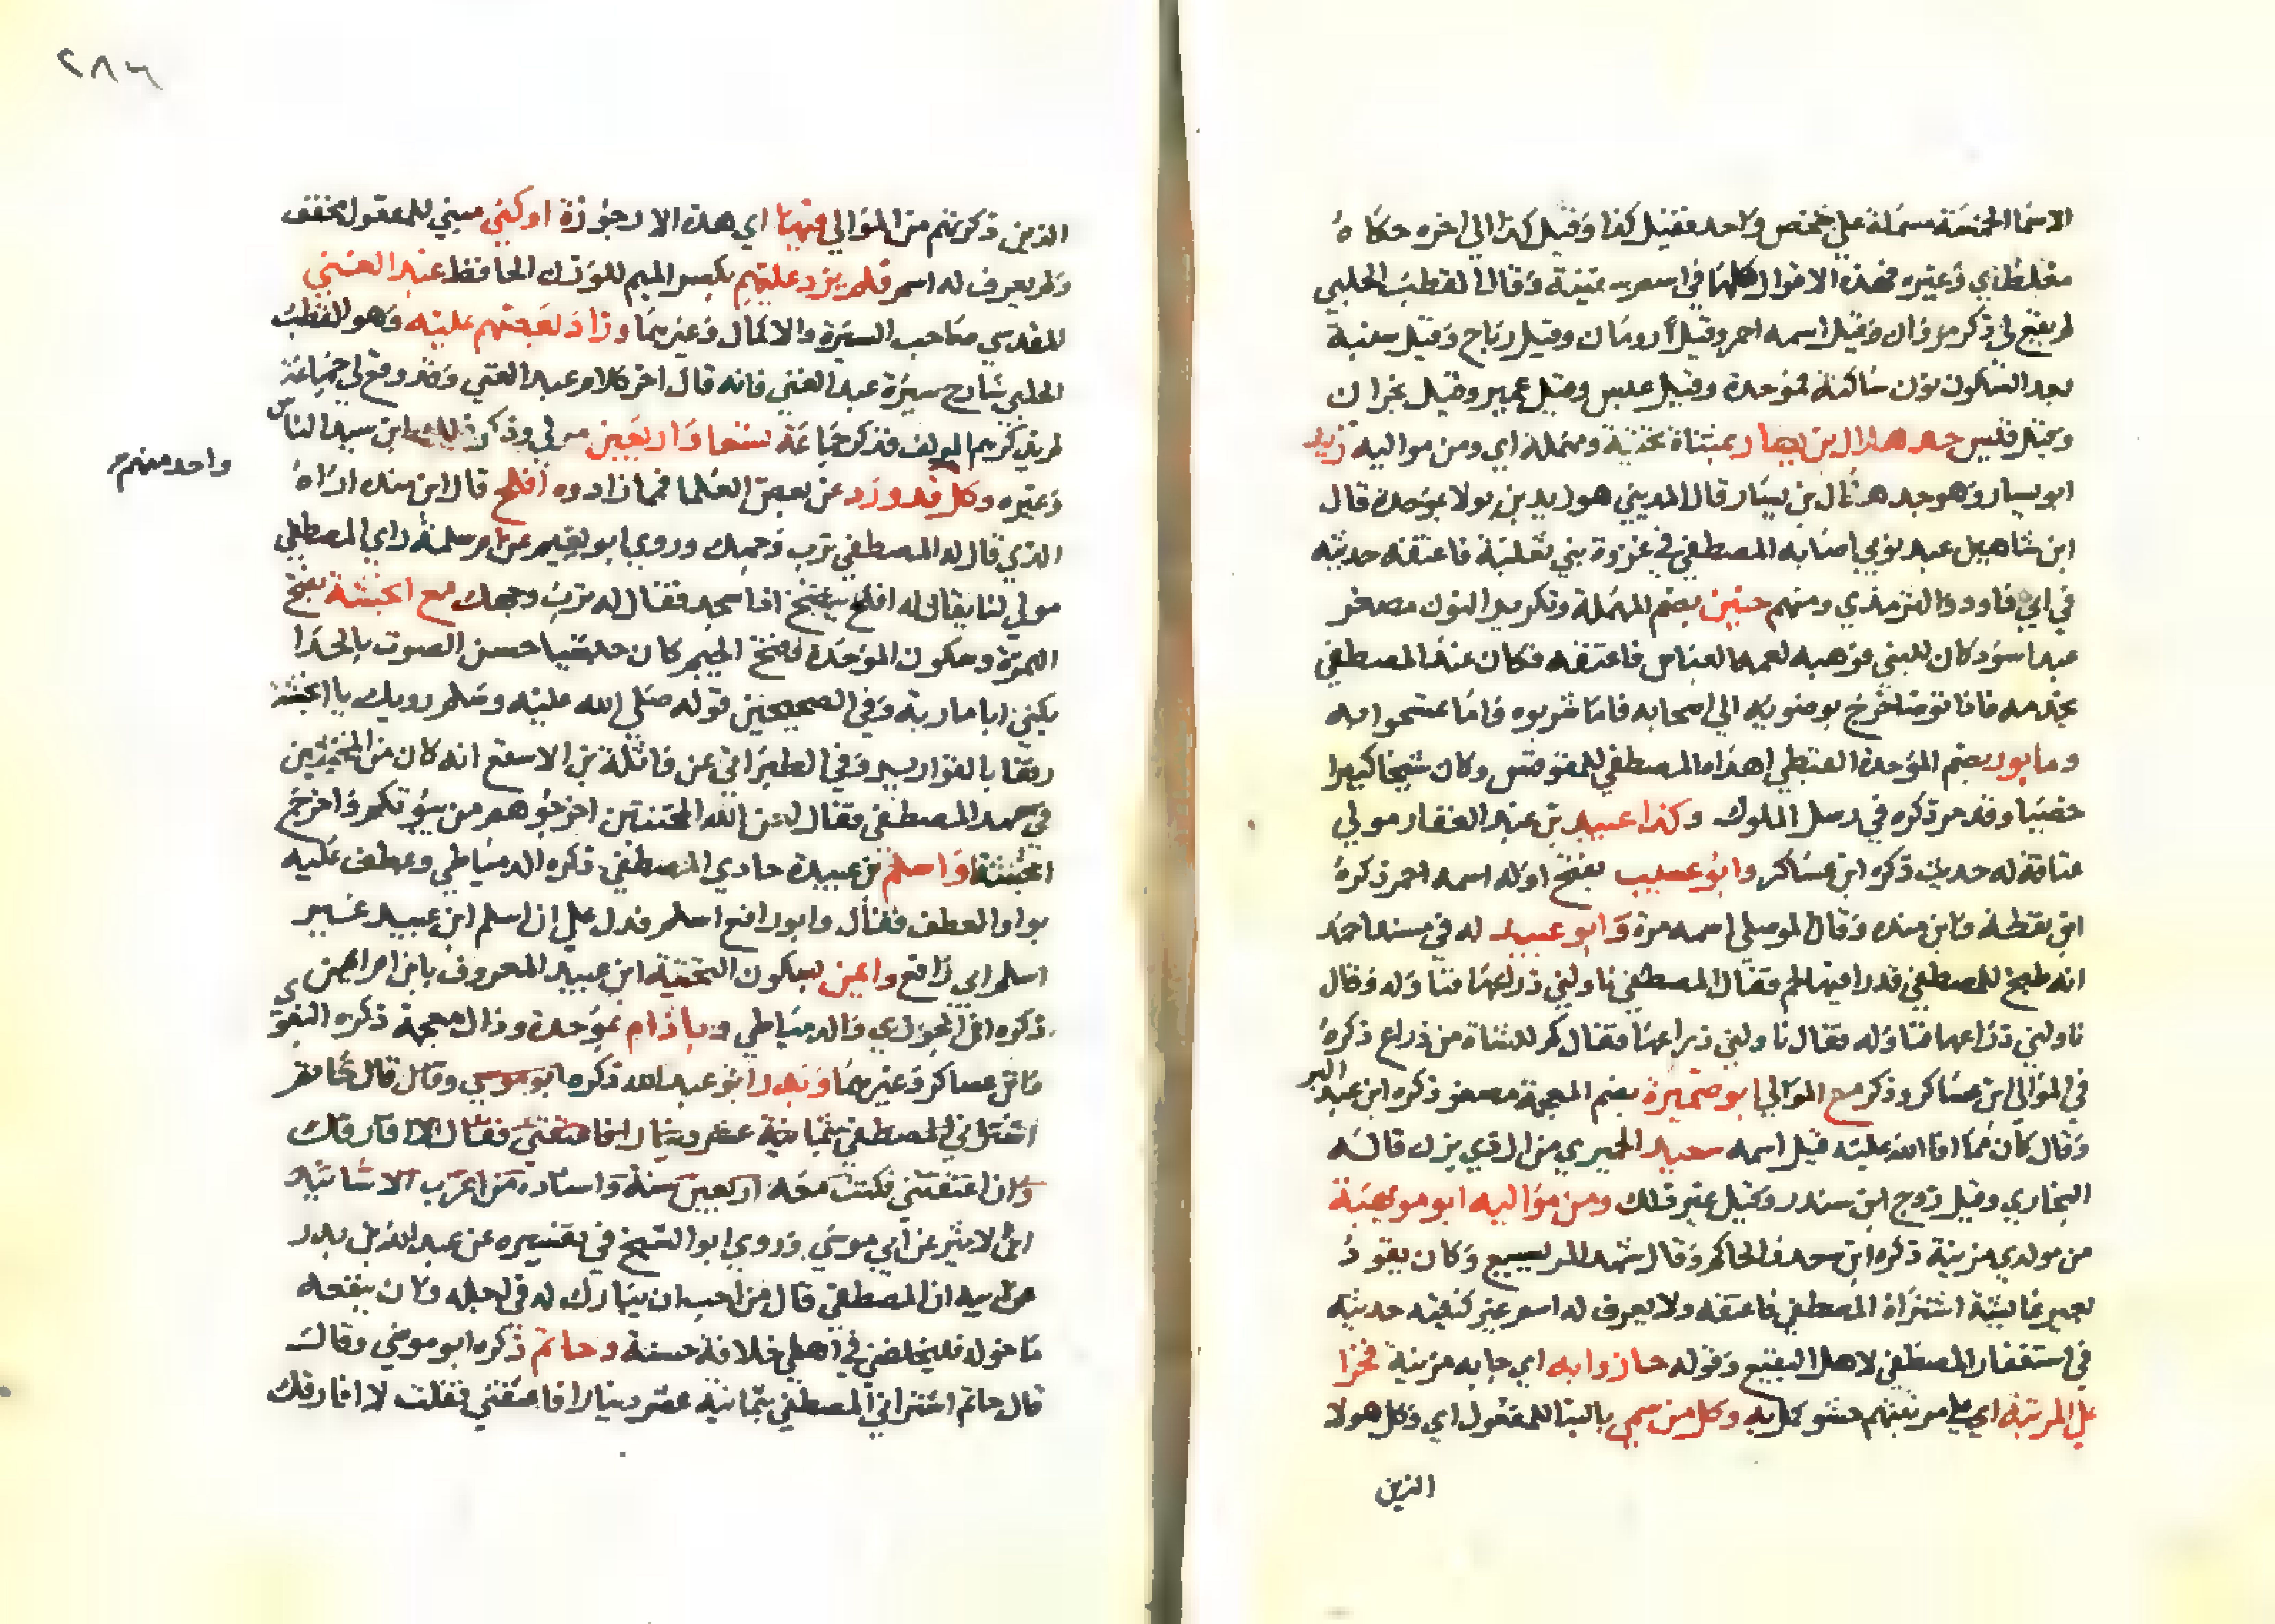 الاسما الخمسة مسماة علي شخص واحد فقيل كذا وقيل كذا الي اخره حكاه
مغلطاي وغيره فهذه الاقوال كلها في اسم سفينة وقال القطب الحلبي
لم يقع لي ذكر مروان وقيل اسمه احمر وقيل رومان وقيل رباح وقيل سنبة
بعد السكون نون ساكنة فموحدة وقيل عبس وقيل عمير وقيل نجران
وقيل قيس جد هلال بن يسار بمثناة تحتية ومهملة اي ومن مواليه زيد
ابو يسار وهو جد هلال بن يسار قال المديني هو زيد بن بولا بموحدة قال
ابن شاهين عبد نوبي اصابه المصطفي في غزوة بني ثعلبة فاعتقه حديثه
في ابي داود والترمذي ومنهم حنين بضم المهملة وتكرير النون مصغر
عبد اسود كان للنبي فوهبه لعمه العباس فاعتقه فكان عند المصطفي
يخدمه فاذا توضا خرج بوضوئه الي اصحابه فاما شربوه واما تمسحوا به
ومابور بضم الموحدة القبطي اهداه المصطفي المقوقس وكان شيخا كبيرا
خصيا وقد مر ذكره في رسل الملوك وكذا عبيد بن عبد الغفار مولي
عتاقة له حديث ذكره ابن عساكر وابو عسيب بفتح اوله اسمه احمر ذكره
ابن نقطة وابن منده وقال الموصلي اسمه مرة وابو عبيد له في مسند احمد
انه طبخ للمصطفي قدرا فيها لحم فقال المصطفي ناولني ذراعها فناوله وقال
ناولني ذراعها فناوله فقال ناولني ذراعها فقال كم للشاة من ذراع ذكره
في الموالي ابن عساكر وذكر مع الموالي ابو ضميرة بضم المعجمة مصغر ذكره ابن عبد البر
وقال كان مما افا الله عليه قيل اسمه سعيد الحميري من ال ذي يزن قاله
البخاري وقيل روح ابن سندر وقيل غير ذلك ومن مواليه ابو مويهبة
من مولدي مزينة ذكره ابن سعد والحاكم وقال شهد المريسيع وكان يقود
بعير عائشة اشتراه المصطفي فاعتقه ولا يعرف له اسم غير كنيته حديثه
في استغفار المصطفي لاهل البقيع وقوله حاز وابه اي حابه مزينة فخرا
علي المرتبة اي علي مرتبتهم حشو كمل به وكل من سمي بالبنا للمفعول اي وكل هولا
الذين
٢٨٦
الذين ذكرتهم من الموالي فيها اي هذه الارجوزة او كني مبني للمفعول مخفف
ولم يعرف له اسم فلم يزد عليهم بكسر الميم للوزن الحافظ عبد الغني
المقدسي صاحب السيرة والاكمال وغيرهما وزاد بعضهم عليه وهو القطب
الحلبي شارح سيرة عبد الغني فانه قال اخر كلام عبد الغني وقد وقع لي جماعة
لم يذكرهم المولف فذكر جماعة تسعا واربعين مولي وذكر ذلك ابن سيد الناس
وغيره وكل قد ورد عن بعض العلما فمما زادوه افلح قال ابن منده اراه
واحد منهم
الذي قال له المصطفي ترب وجهك وروي ابو نعيم عن ام سلمة راي المصطفي
مولي لنا يقال له افلح ينفخ اذا سجد فقال له ترب وجهك مع انجشة بفتح
الهمزة وسكون الموحدة وفتح الجيم كان حبشيا حسن الصوت بالحدا
يكني ابا مارية وفي الصحيحين قوله صلي الله عليه وسلم رويدك يا انجشة
رفقا بالقوارير وفي الطبراني عن واثلة بن الاسقع انه كان من المخنثين
في عهد المصطفي فقال لعن الله المخنثين اخرجوهم من بيوتكم واخرج
انجشة واسلم بن عبيدة حادي المصطفي ذكره الدمياطي وعطف عليه
بواو العطف فقال وابو رافع اسلم فدل علي ان اسلم ابن عبيد غير
اسلم ابي رافع وايمن بسكون التحتية ابن عبيد المعروف بابن ام ايمن
ذكره ابن الجوزي والدمياطي وباذام بموحدة وذال معجمة ذكره البغوي
وابن عساكر وغيرهما وبدر ابو عبد الله ذكره ابو موسي وقال قال حاتم
اشتراني المصطفي بثمانية عشر دينارا فاعتقني فقال لا افارقك
وان اعتقتني فكنت معه اربعين سنة واسناده من اغرب الاسانيد
ابن الاثير عن ابي موسي وروي ابو الشيخ في تفسيره عن عبد الله بن بدر
عن ابيه ان المصطفي قال من احب ان يبارك له في اجله وان ينفعه
ما خوله فليخلفني في اهلي خلافة حسنة وحاتم ذكره ابو موسي وقال
قال حاتم اشتراني المصطفي بثمانية عشر دينارا فاعتقني فقلت لا افارقك